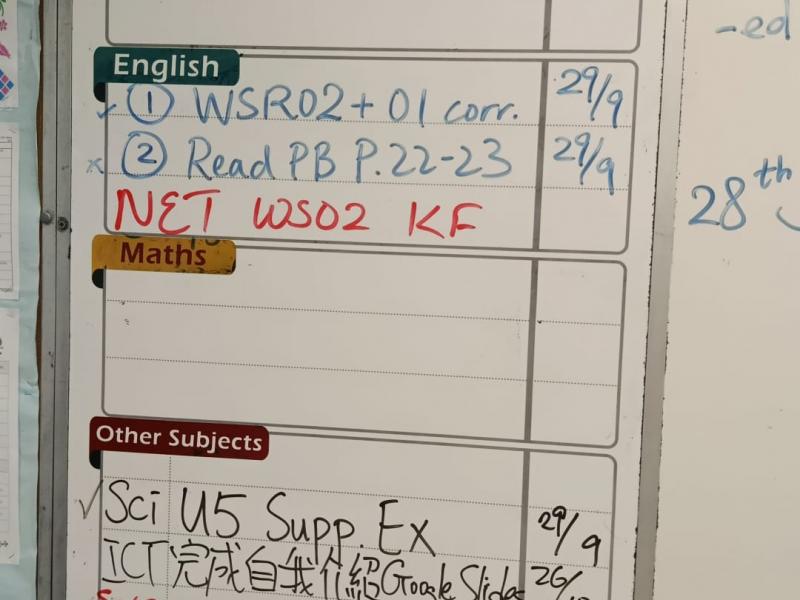 -ed
English
① WSR02 + 01 corr. 29/9
② Read PB P.22-23 29/9
NET WS02 KF
28th
Maths
Other Subjects
Sci U5 Supp. Ex 29/9
ICT 完成自我介紹Google Slides 26/